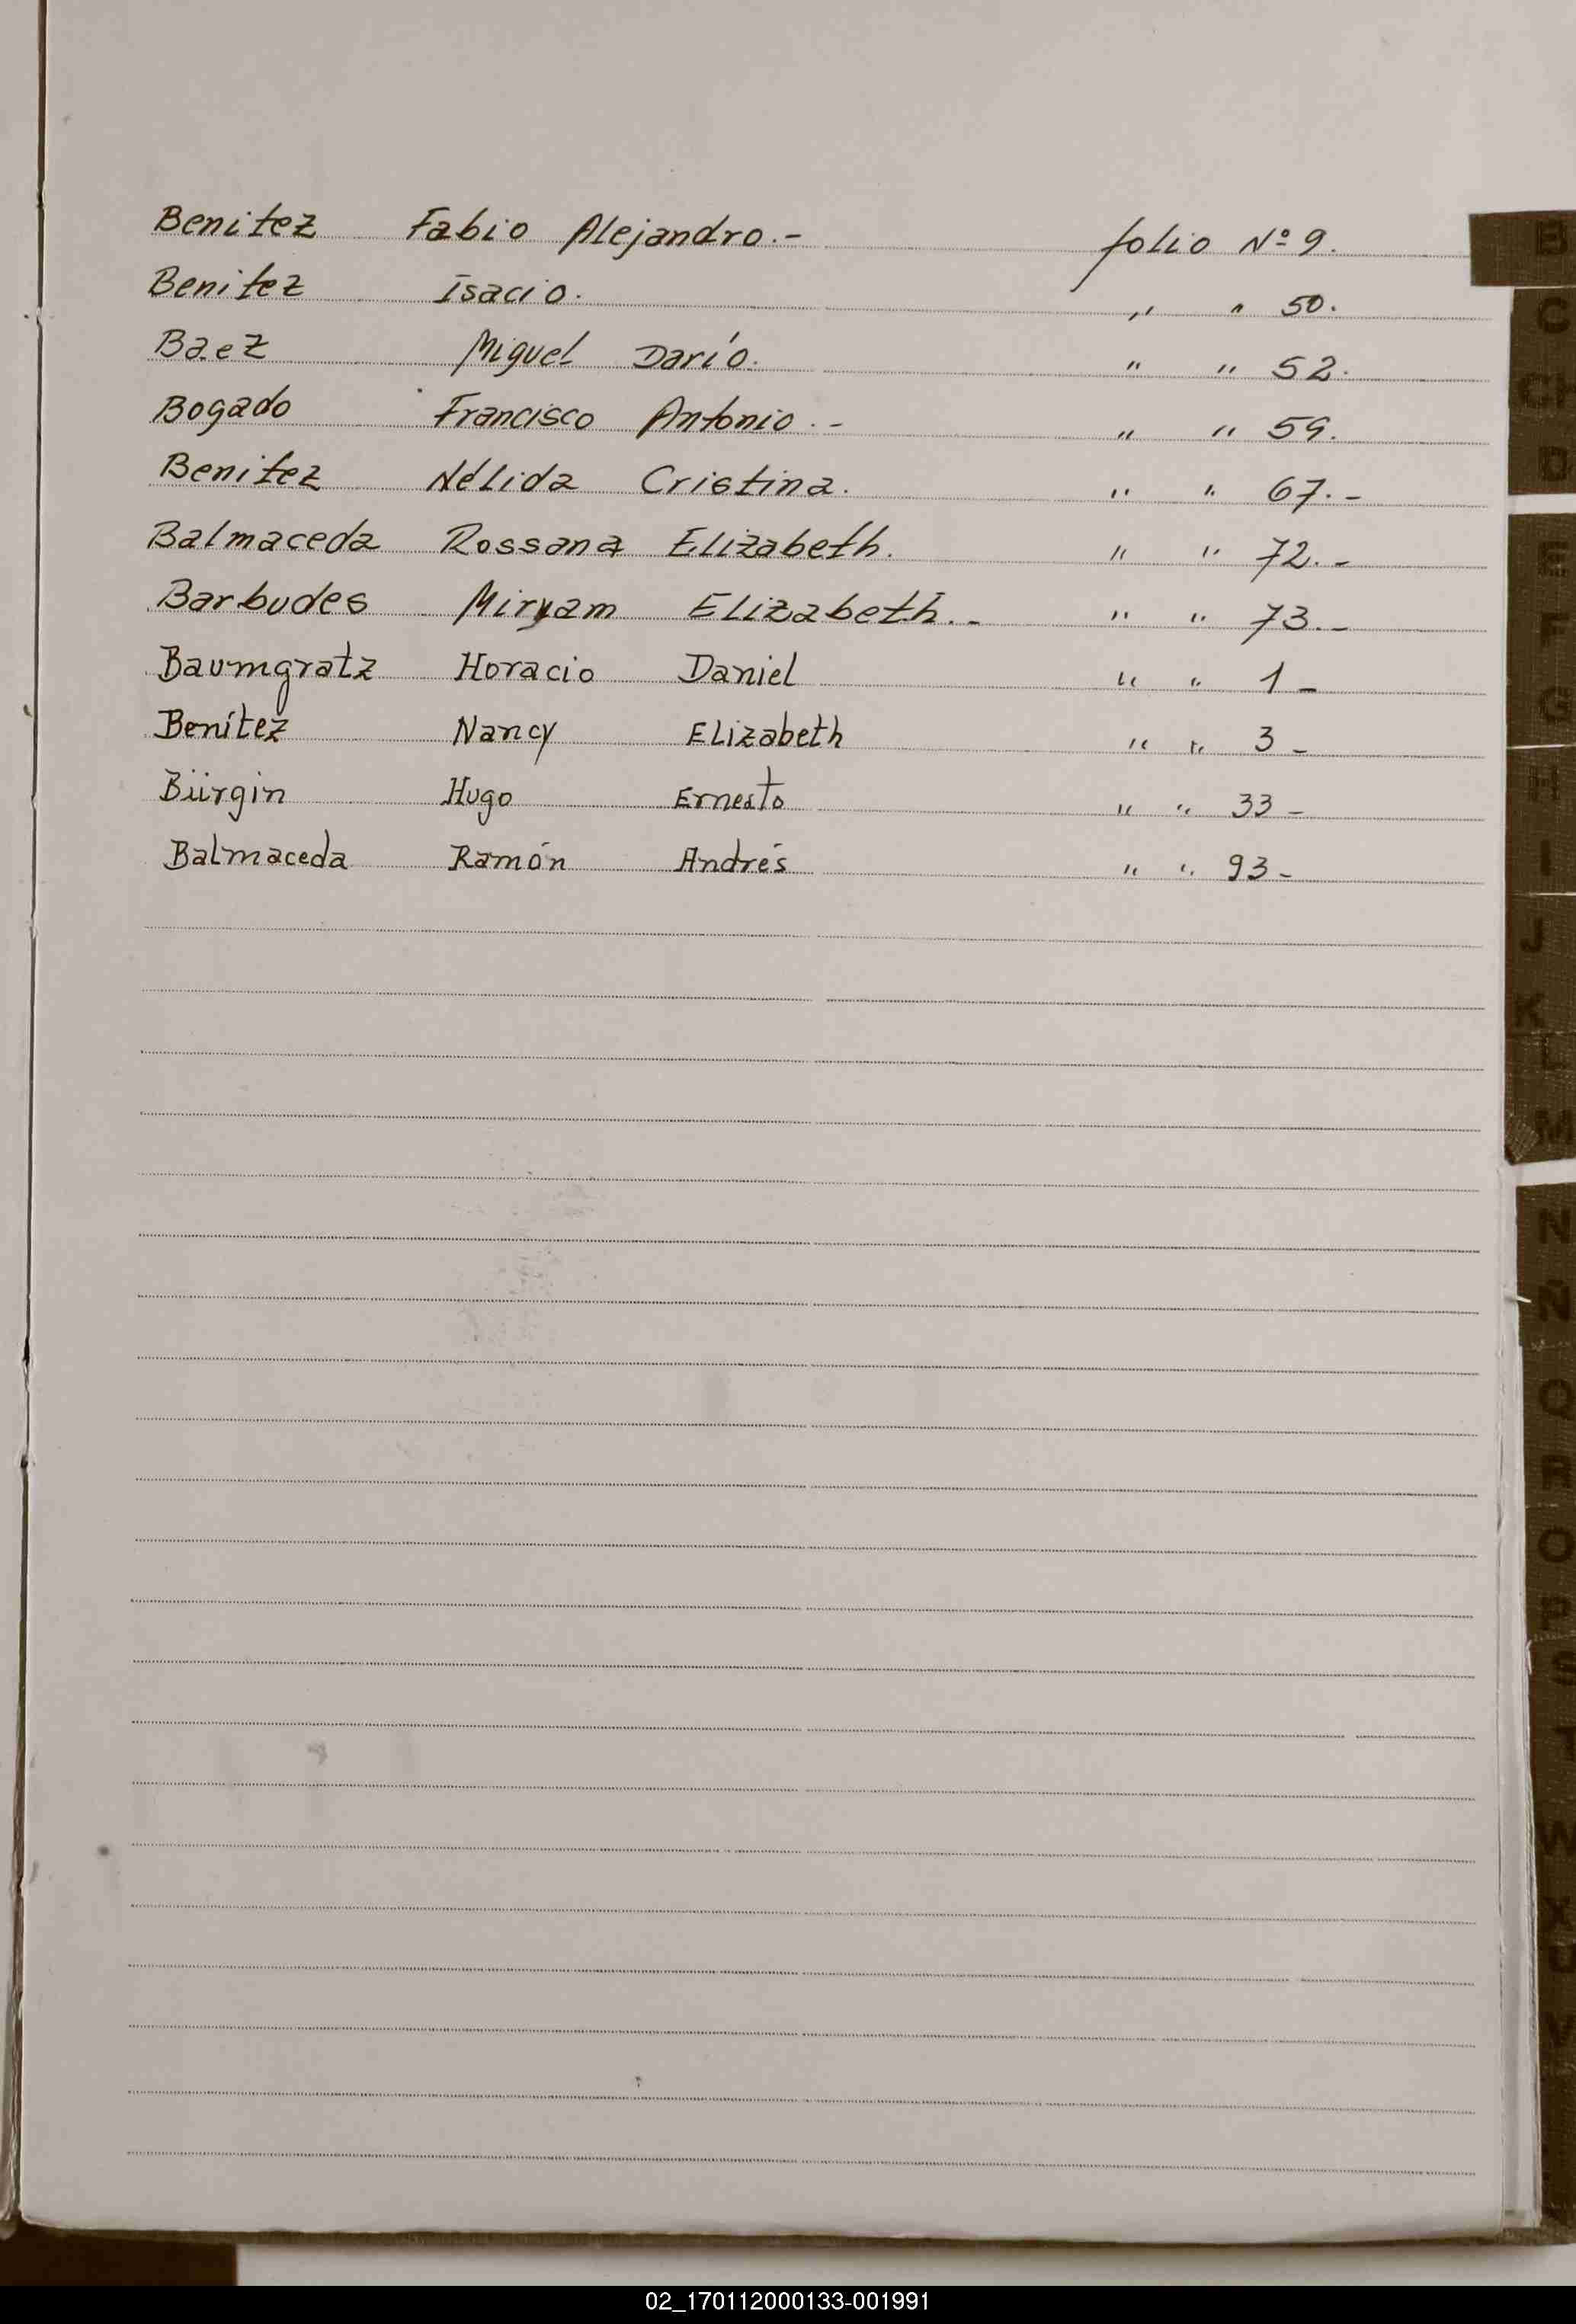 Benitez Fabio Alejandro.- folio Nº 9.
Benitez Isacio. " " 50.
Baez Miguel Darío. " " 52.
Bogado Francisco Antonio.- " " 59.
Benitez Nélida Cristina. " " 67.-
Balmaceda Rossana Elizabeth. " " 72.-
Barbudes Miryam Elizabeth.- " " 73.-
Baumgratz Horacio Daniel " " 1-
Benítez Nancy Elizabeth " " 3-
Bürgin Hugo Ernesto " " 33-
Balmaceda Ramón Andrés " " 93-
B
C
CH
D
E
F
G
H
I
J
K
L
M
N
N
O
R
Q
P
S
T
W
X
U
V
02_170112000133-001991